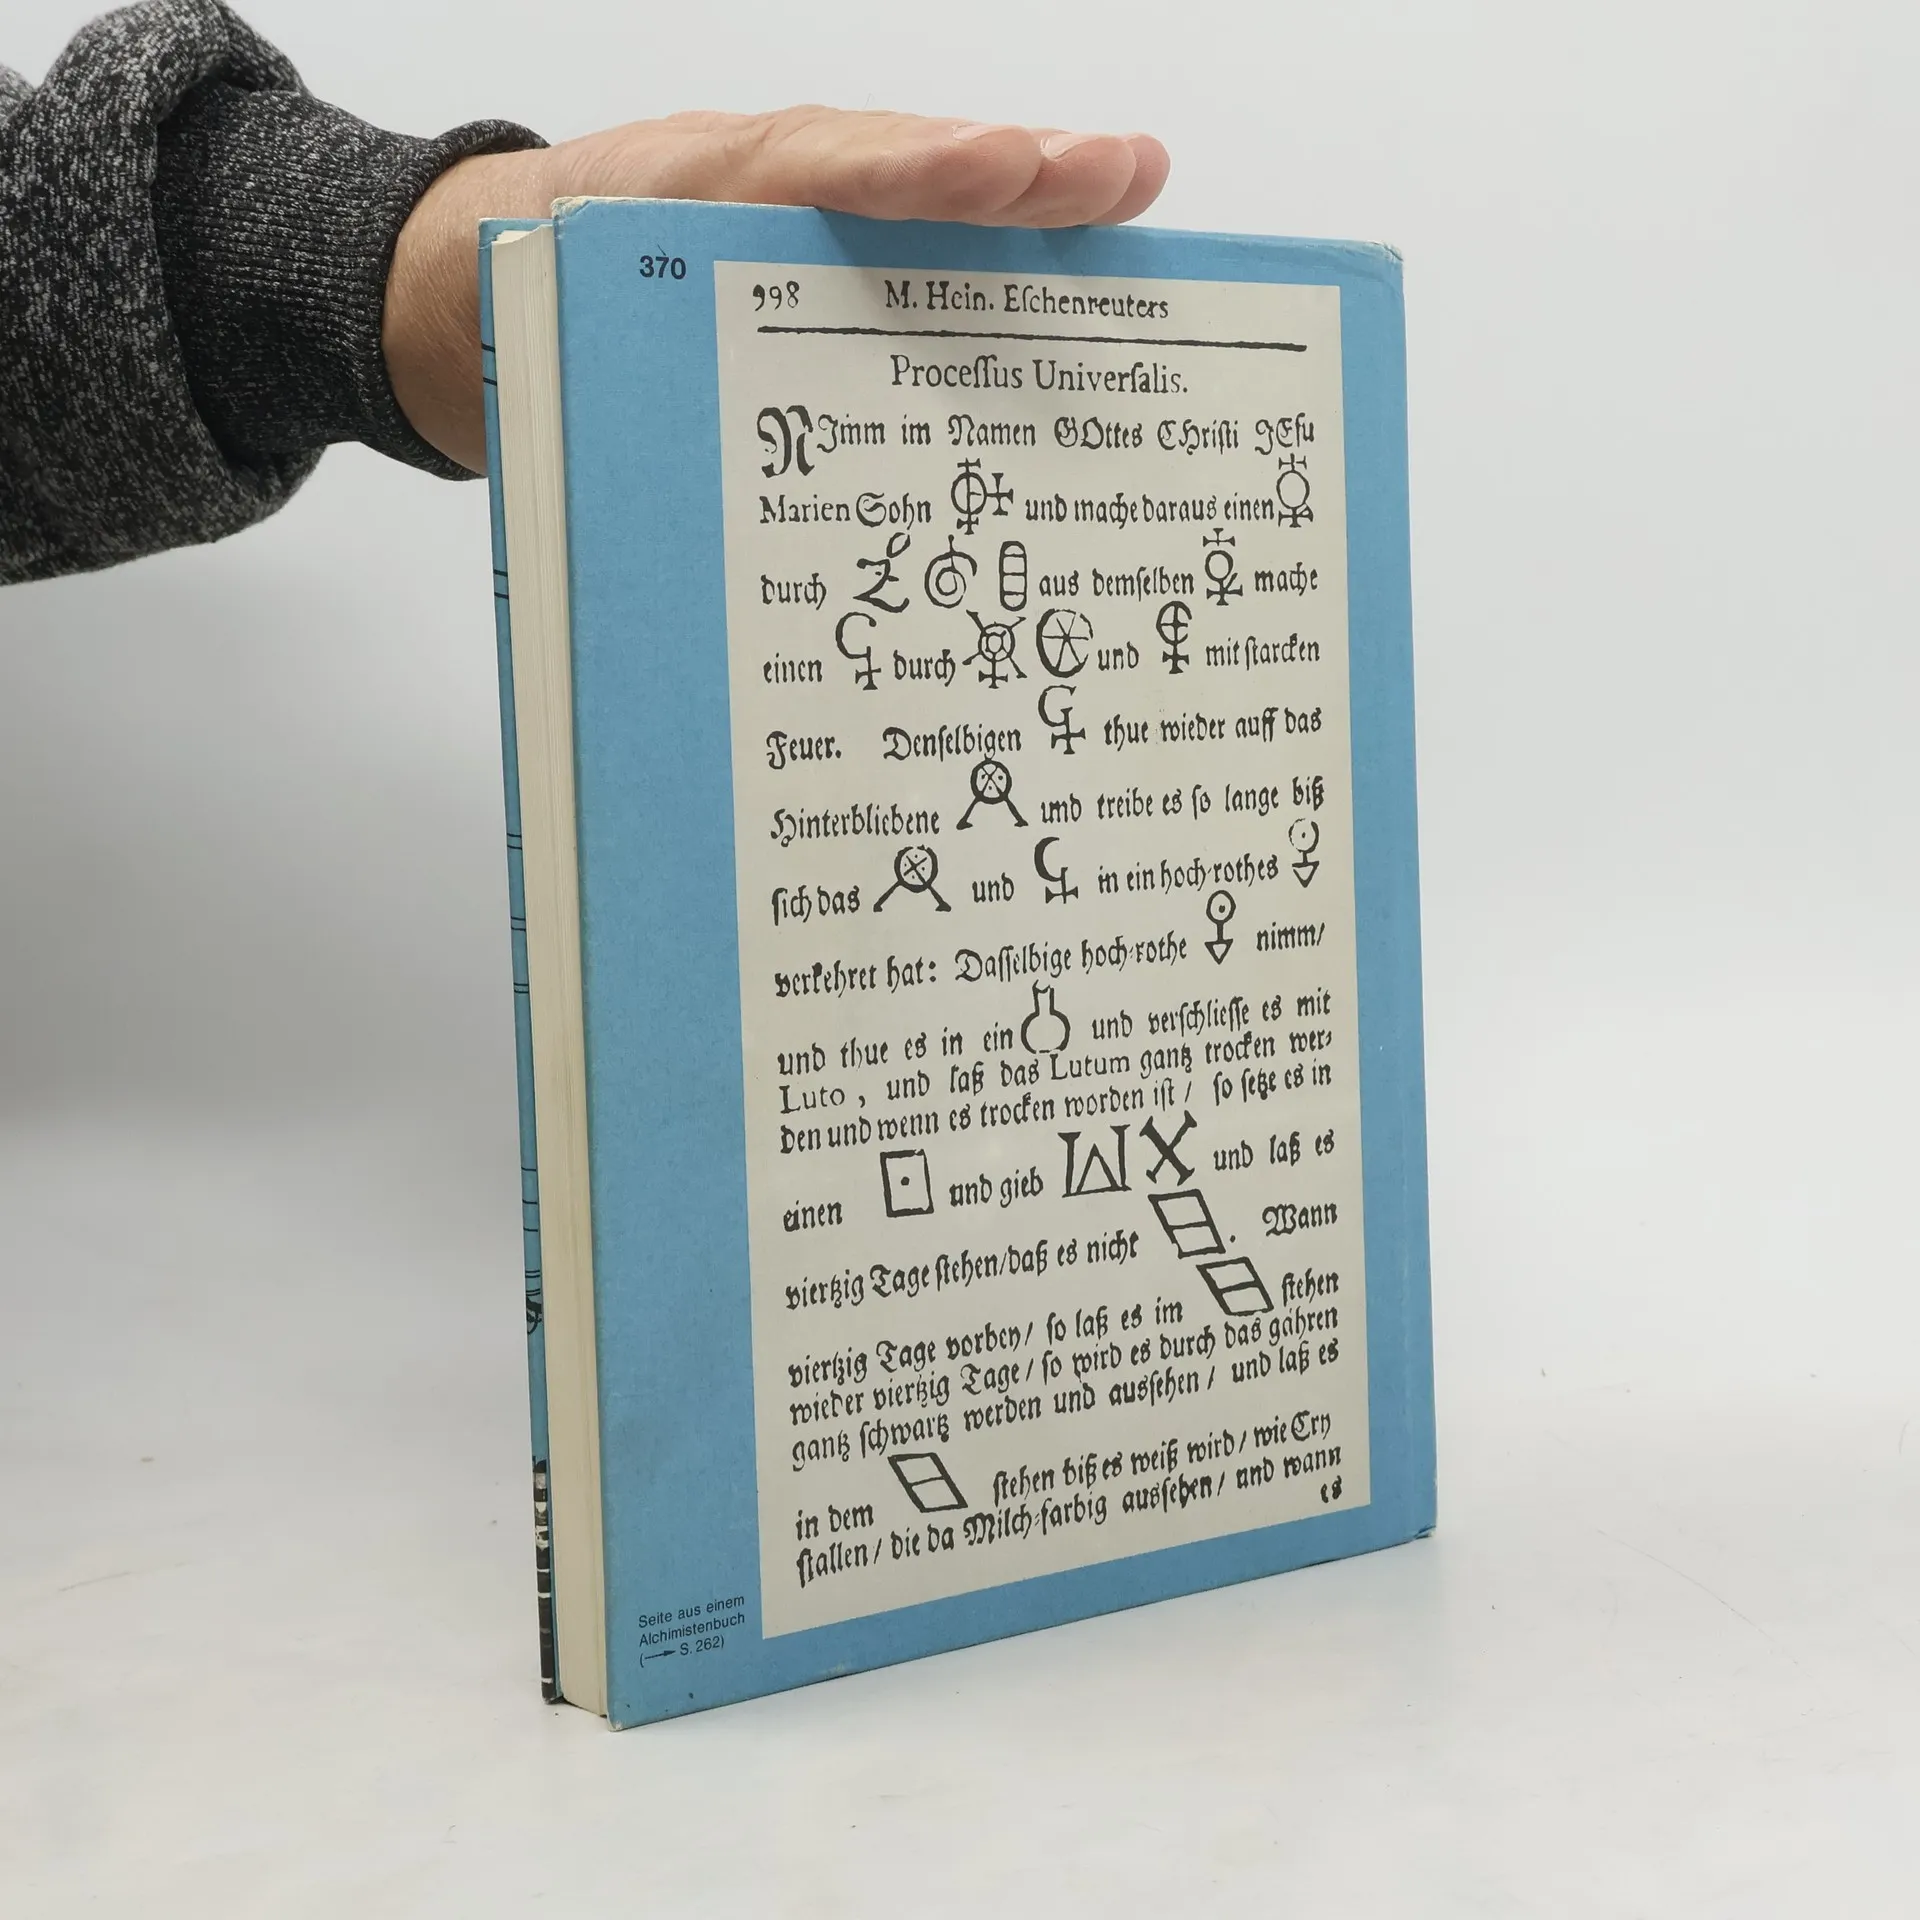 370
998 M. Hein. Eſchenreuters
Proceſſus Univerſalis.
NImm im Namen GOttes CHriſti JEſu
Marien Sohn und mache daraus einen
durch aus demſelben mache
einen durch und mit ſtarcken
Feuer. Denſelbigen thue wieder auff das
Hinterbliebene und treibe es ſo lange biß
ſich das und in ein hoch-rothes
verkehret hat: Daſſelbige hoch-rothe nimm/
und thue es in ein und verſchlieſſe es mit
Luto, und laß das Lutum gantz trocken wer-
den und wenn es trocken worden iſt/ ſo ſetze es in
einen und gieb und laß es
viertzig Tage ſtehen/daß es nicht . Wann
viertzig Tage vorbey/ ſo laß es im ſtehen
wieder viertzig Tage/ ſo wird es durch das gähren
gantz ſchwartz werden und ausſehen/ und laß es
in dem ſtehen biß es weiß wird/ wie Cry
ſtallen/ die da Milch-farbig ausſehen/ und wann
es
Seite aus einem
Alchimistenbuch
(→ S. 262)